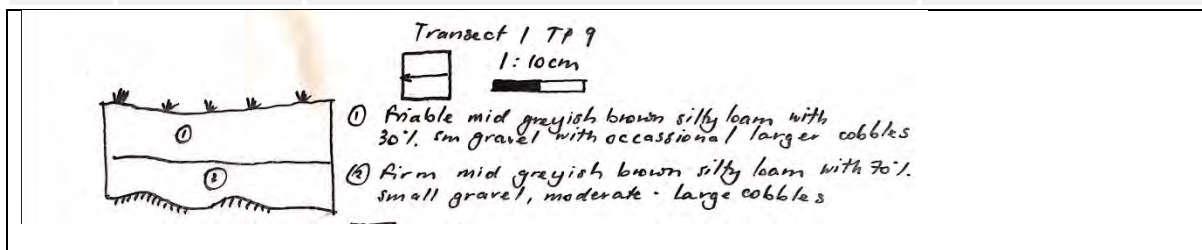 Transect 1 TP 9
1:10cm
① friable mid greyish brown silty loam with
30% sm gravel with occassional larger cobbles
② firm mid greyish brown silty loam with 70%
small gravel, moderate - large cobbles
①
②